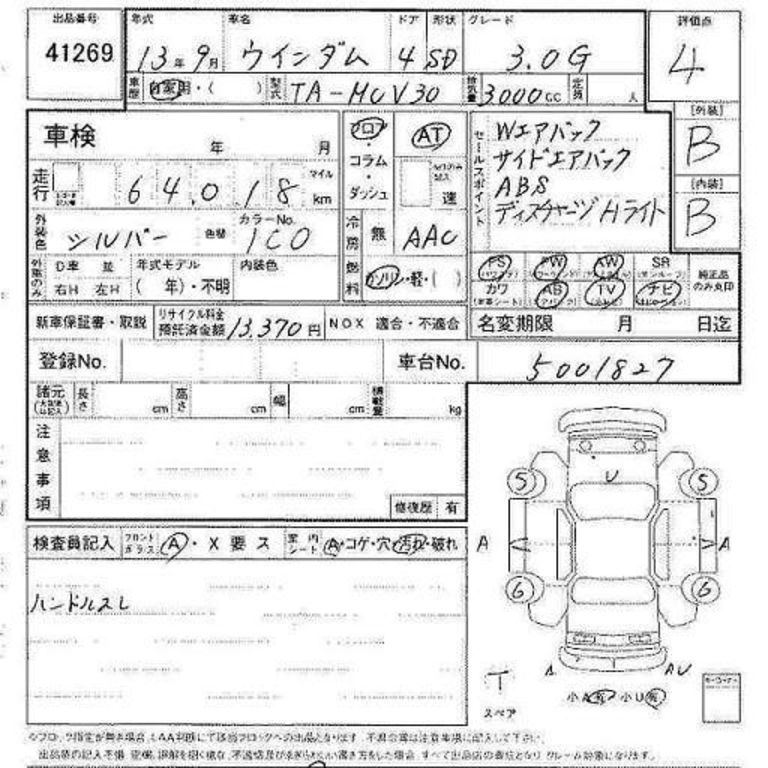 出品番号 年式 車名 ドア 形状 グレード 評価点
41269 13年9月 ウインダム 4 SD 3.0G 4
車歴 自家用・( ) 型式 TA-MCV30 排気量 3000cc 定員 人
[外装]
車検 年 月 フロア AT セールスポイント Wエアバック B
コラム サイドエアバック
走行 64,018 マイル km ダッシュ 速 ABS [内装]
ディスチャージHライト B
外装色 シルバー 色替 カラーNo. 1C0 冷房 無 AAC
PS PW AW SR 純正品のみ丸印
外車のみ D車 並 年式モデル 内装色 燃料 ガソリン・軽・( ) カワ AB TV ナビ
右H 左H ( 年)・不明
新車保証書・取説 リサイクル料金預託済金額 13,370円 NOX 適合・不適合 名変期限 月 日迄
登録No. 車台No. 5001827
諸元 長さ cm 高さ cm 幅 cm 積載量 kg
注意事項
修復歴 有
検査員記入 フロントガラス A・X 要 ス 室内シート A・コゲ・穴・汚れ・破れ
ハンドルスレ
U
5 5
A A
6 6
A AU
T スペア
小A有 小U有